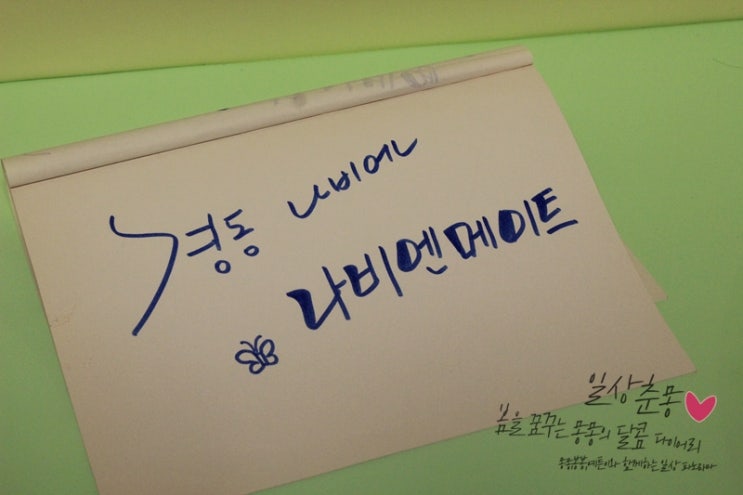 경동 나비엔
나비엔메이트
일상춘몽
봄을 꿈꾸는 몽몽의 달콤 다이어리
함께하는 일상 파노라마